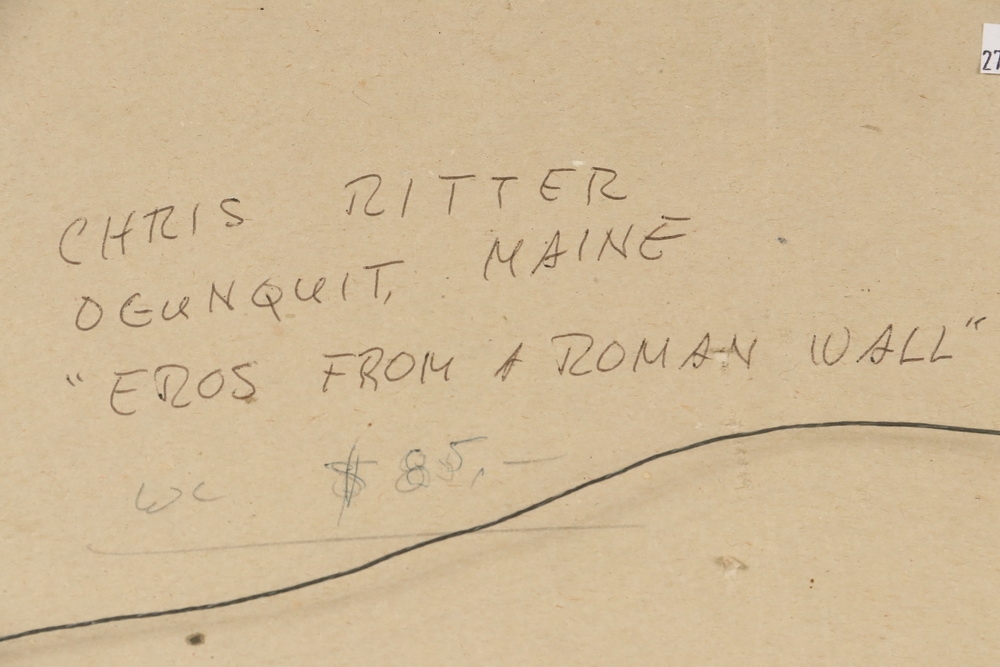 27
CHRIS RITTER
OGUNQUIT, MAINE
"EROS FROM A ROMAN WALL"
WC $85.—